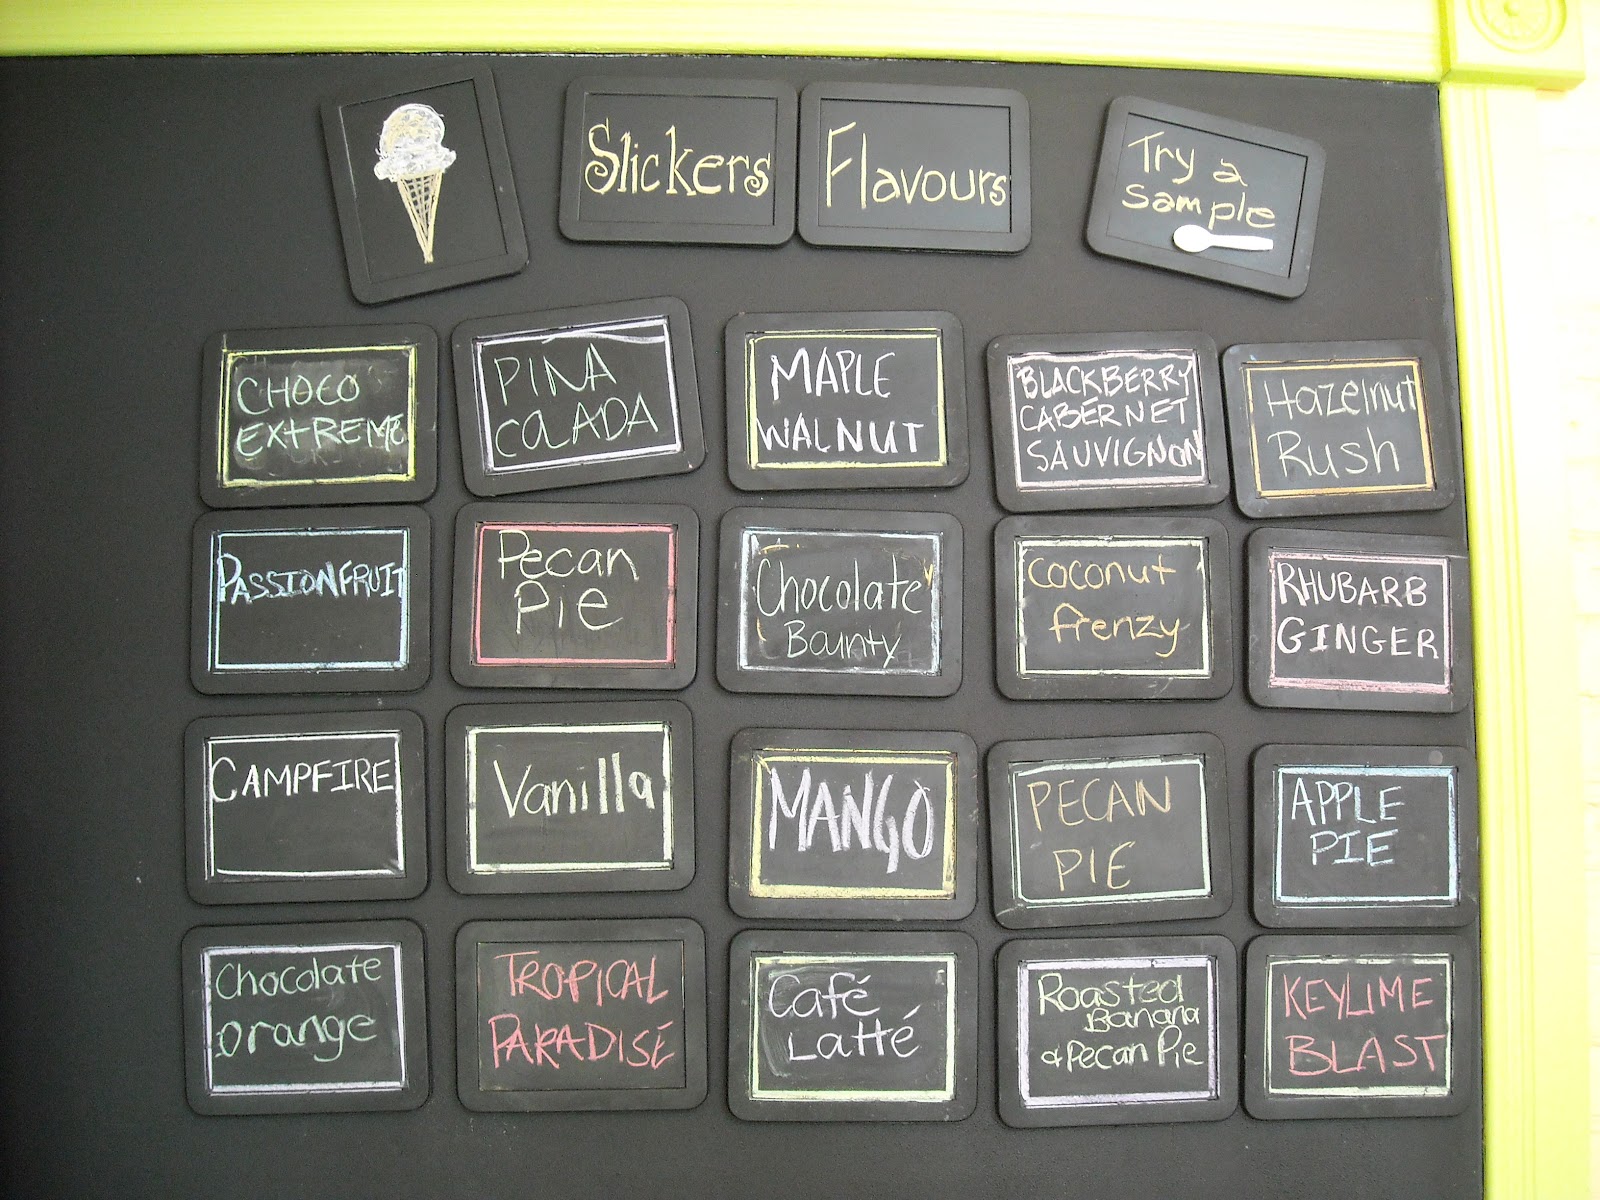 Slickers
Flavours
Try a
sample
CHOCO
EXTREME
PINA
COLADA
MAPLE
WALNUT
BLACKBERRY
CABERNET
SAUVIGNON
Hazelnut
Rush
PASSIONFRUIT
Pecan
Pie
Chocolate
Bounty
Coconut
frenzy
RHUBARB
GINGER
CAMPFIRE
Vanilla
MANGO
PECAN
PIE
APPLE
PIE
Chocolate
Orange
TROPICAL
PARADISE
Café
Latté
Roasted
Banana
& Pecan Pie
KEYLIME
BLAST